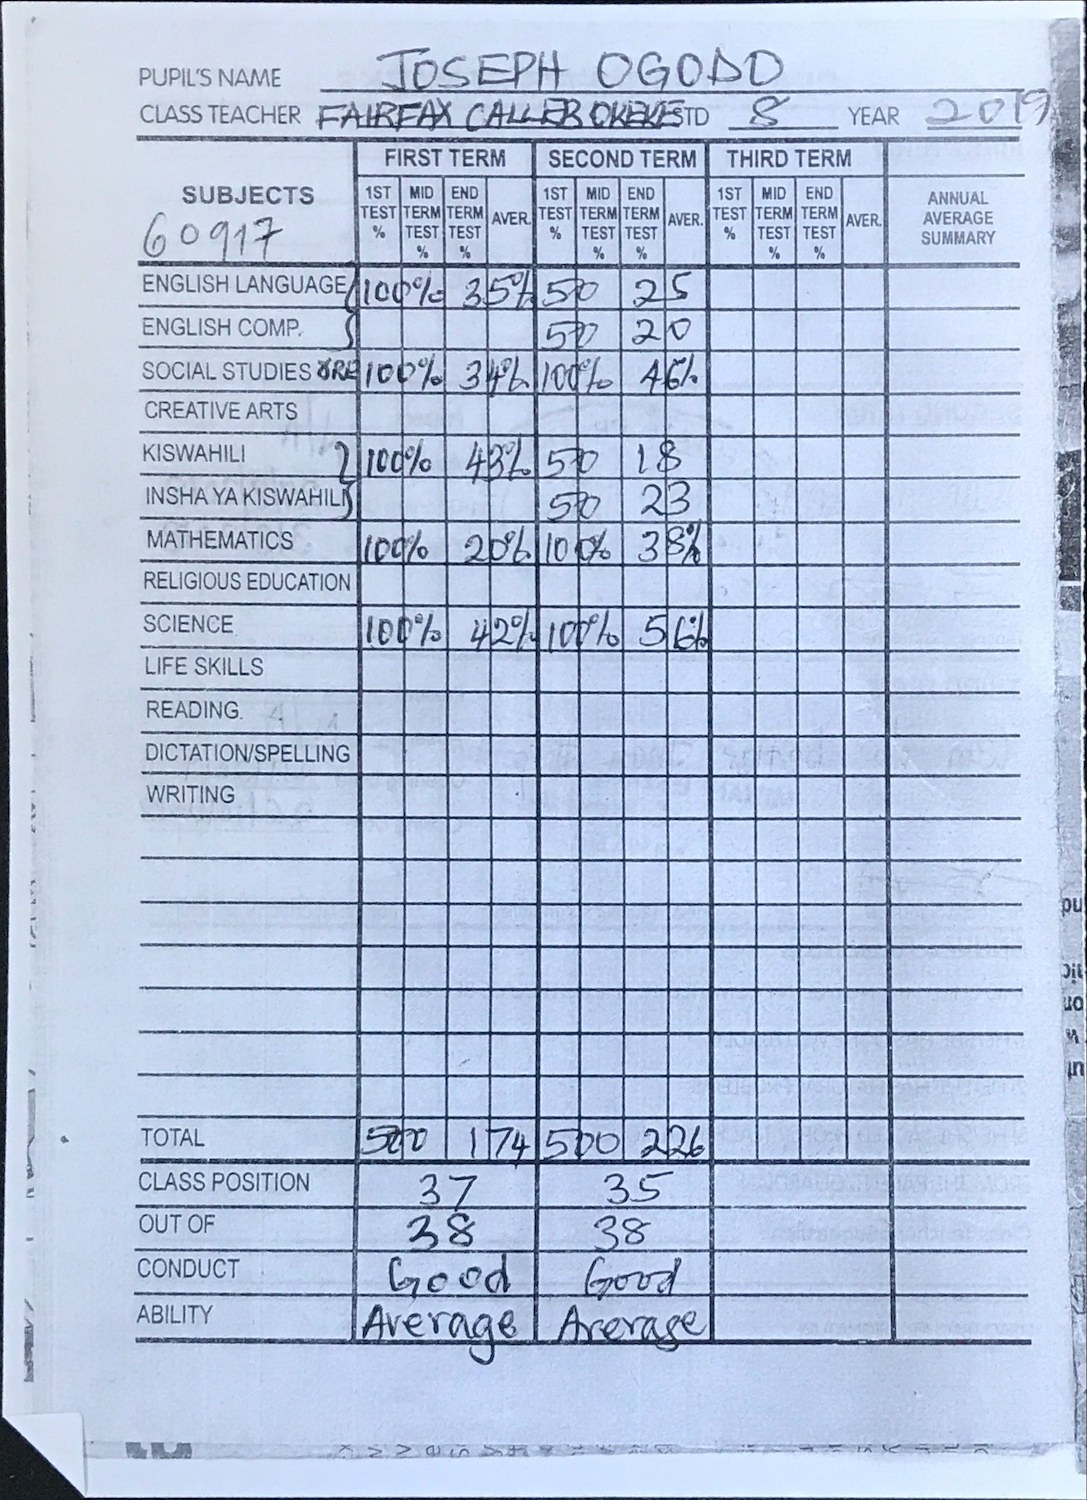 PUPIL'S NAME JOSEPH OGODD
CLASS TEACHER FAIRFAX CALLEB OKEKE STD 8 YEAR 2019
SUBJECTS FIRST TERM SECOND TERM THIRD TERM
60917
1ST TEST % MID TERM TEST % END TERM TEST % AVER. 1ST TEST % MID TERM TEST % END TERM TEST % AVER. 1ST TEST % MID TERM TEST % END TERM TEST % AVER. ANNUAL AVERAGE SUMMARY
ENGLISH LANGUAGE 100% 35% 50 25
ENGLISH COMP. 50 20
SOCIAL STUDIES &RE 100% 34% 100% 46%
CREATIVE ARTS
KISWAHILI 100% 43% 50 18
INSHA YA KISWAHILI 50 23
MATHEMATICS 100% 20% 100% 38%
RELIGIOUS EDUCATION
SCIENCE 100% 42% 100% 56%
LIFE SKILLS
READING.
DICTATION/SPELLING
WRITING
TOTAL 500 174 500 226
CLASS POSITION 37 35
OUT OF 38 38
CONDUCT Good Good
ABILITY Average Average